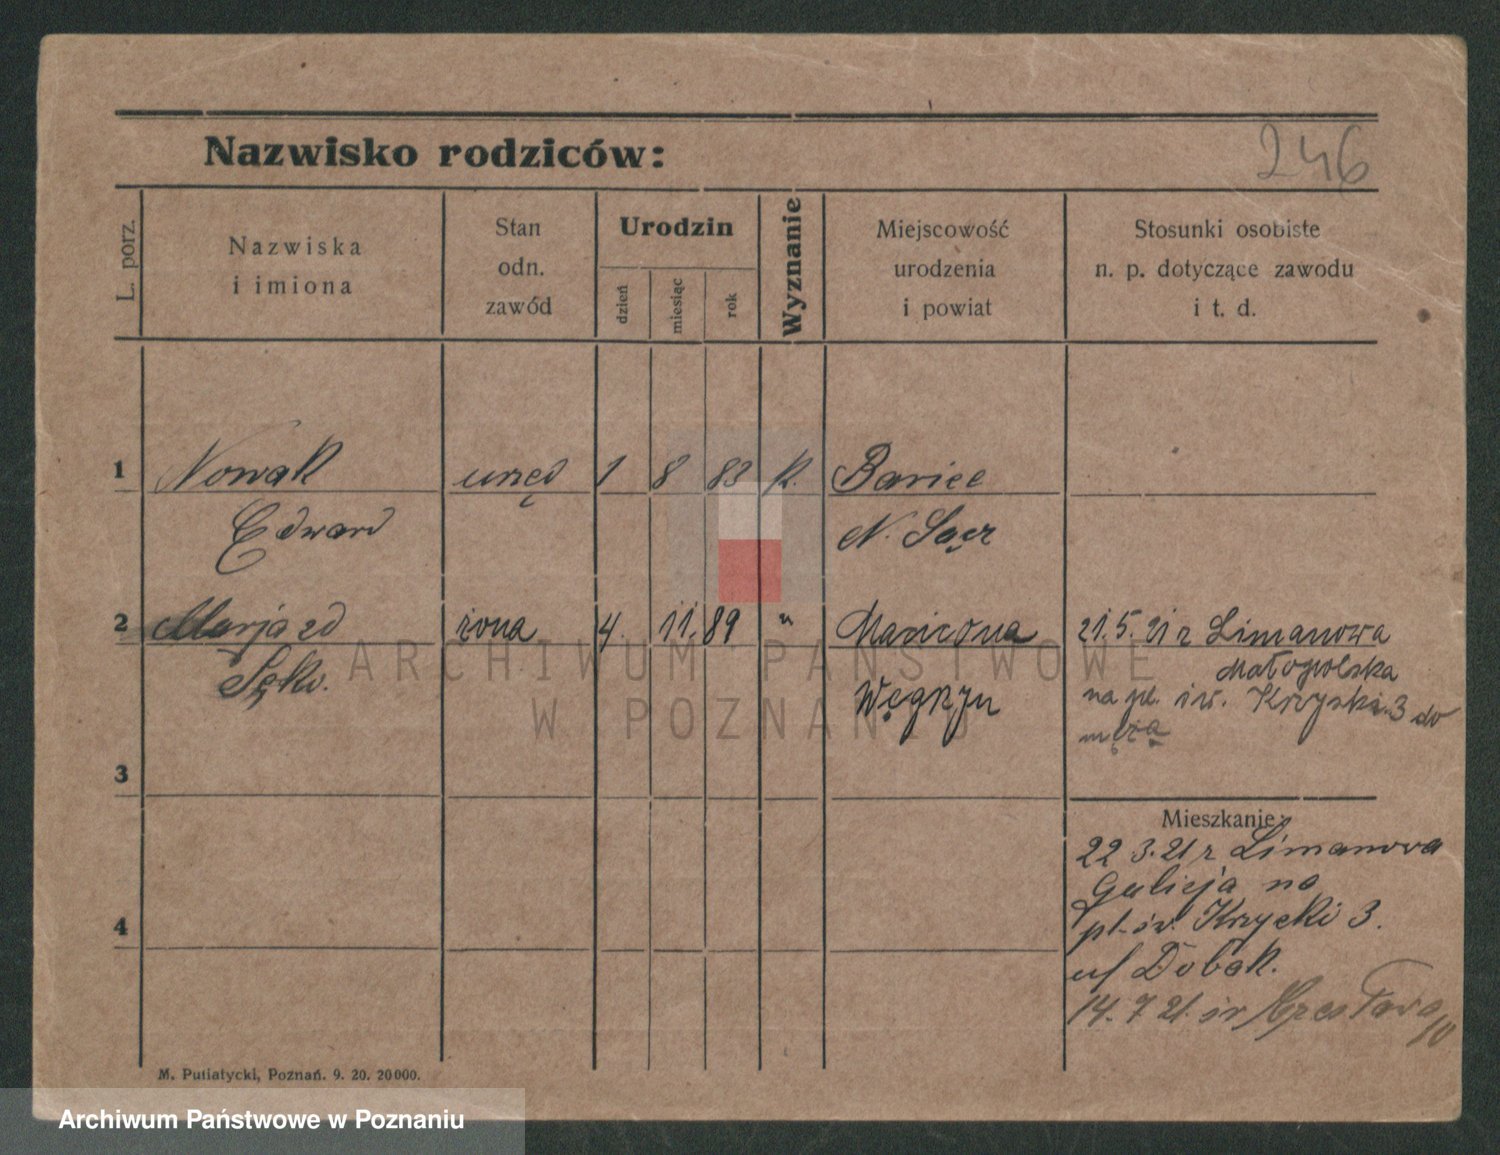 Nazwisko rodziców:
246
L. porz.
Nazwiska
i imiona
Stan
odn.
zawód
Urodzin
dzień
miesiąc
rok
Wyznanie
Miejscowość
urodzenia
i powiat
Stosunki osobiste
n. p. dotyczące zawodu
i t. d.
1 Nowak urzęd 1 8 83 k. Bariec
Edward N. Sącz
2 Marja zd żona 4. 11. 89 " 21.5.21 z Limanowa
Małopolska
Węgrzy na pl. św. 3 do
męża
ARCHIWUM PAŃSTWOWE
W POZNANIU
3
Mieszkanie:
22 3.21 z Limanowa
Galicja na
pl. św. Krzycki 3.
u/ Dobak.
4
14.7 21. św
10
M. Putiatycki, Poznań. 9. 20. 20000.
Archiwum Państwowe w Poznaniu